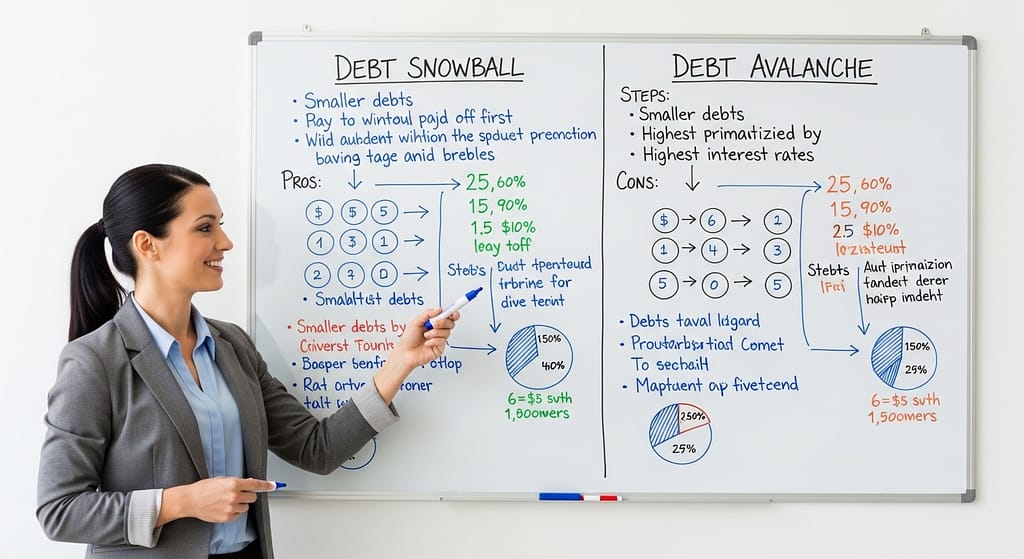 DEBT SNOWBALL
• Smaller debts
• Ray to wintoul pajd off first
• Wild aubdent wihtion the spduet premction
baving tage anid brebles
PROS:
25,60%
15,90%
1.5 $10%
leay toff
$ $ 5
1 3 1
2 7 0
Stebs
Dust tpenteusd
irbrine for
dive tecnt
• Smalbltist debts
• Smaller debts by
Criverst Tounk
• Bosper Senfr
• Rat
talt
150%
40%
6=$5 suth
1,800wers
DEBT AVALANCHE
STEPS:
• Smaller debts
• Highest primatizied by
• Highest interest rates
CONS:
25,60%
15,90%
25 $10%
$ 6 2
1 4 3
5 0 5
Stebts
Aut iprinazion
fandert derer
hoipp imdeht
• Debts taval ldgard
• Proutarbstiad Comet
To sechailt
• Maptuent ap fivetcend
150%
25%
6=$5 suth
1,500mers
250%
25%